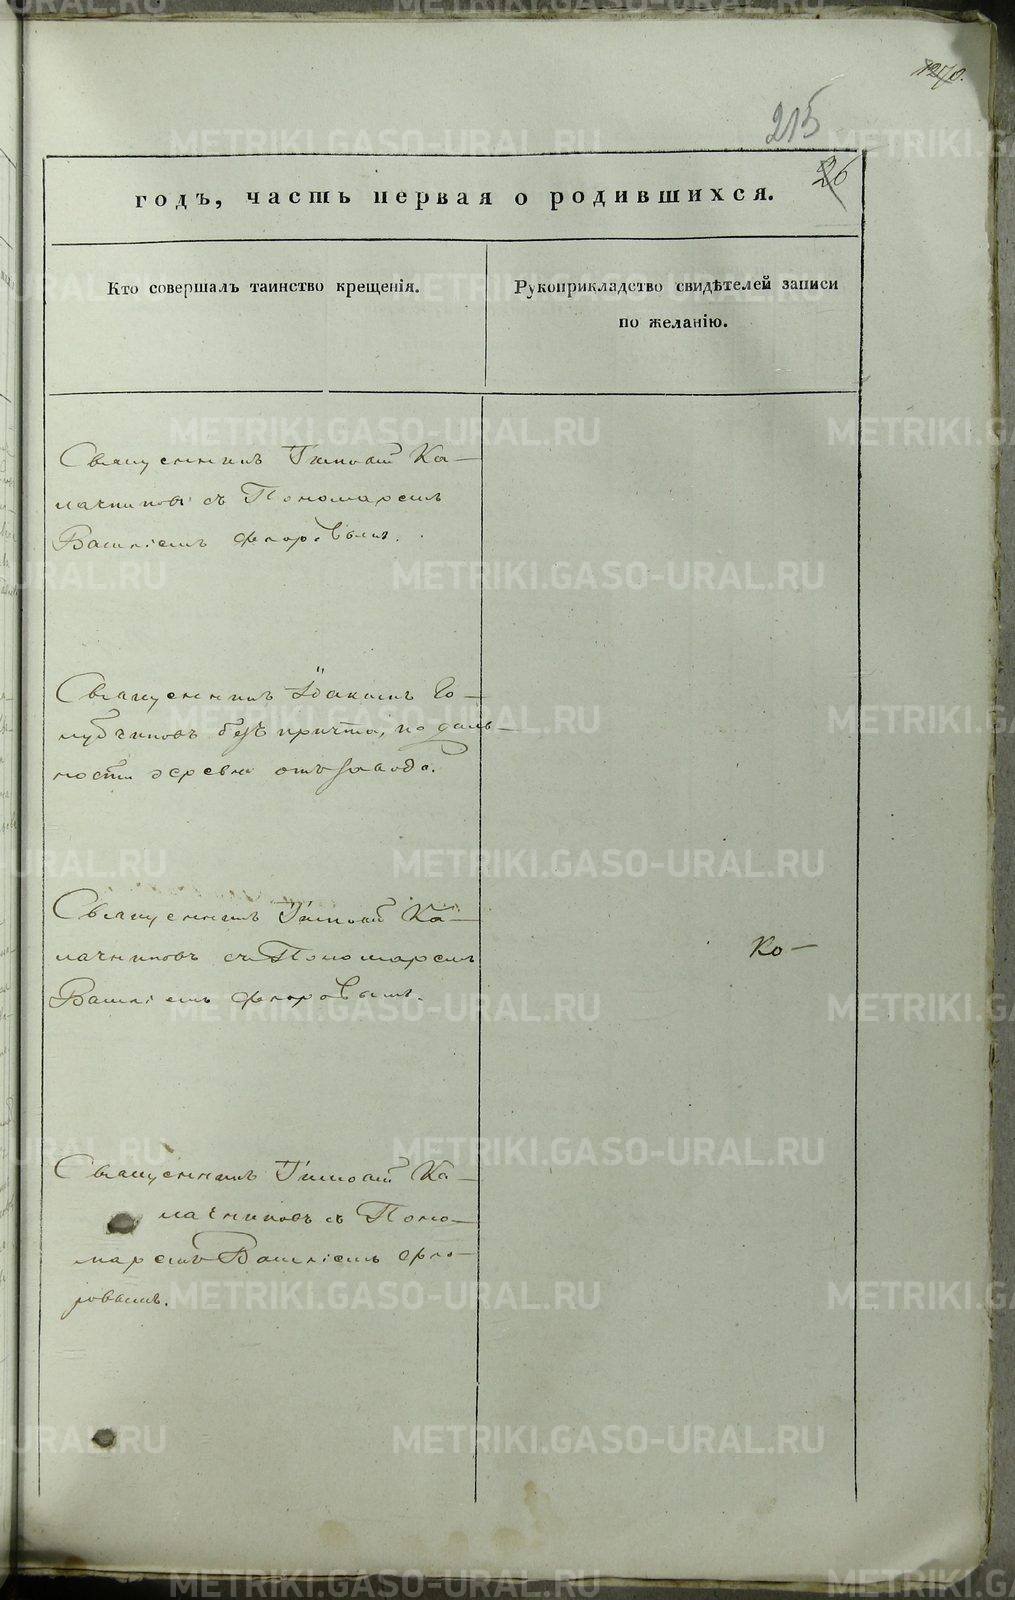 215
26
годъ, часть первая о родившихся.
Кто совершалъ таинство крещенія.
Рукоприкладство свидѣтелей записи
по желанію.
Священникъ Ка-
лачниковъ съ Пономаремъ
Василіемъ Флоровымъ.
Священникъ Іоакимъ Го-
лубчиковъ безъ причта, по даль-
ности деревни отъ завода.
Священникъ Ка-
лачниковъ съ Пономаремъ
Василіемъ Флоровымъ.
Ко-
Священникъ Ка-
лачниковъ съ Поно-
маремъ Василіемъ Фло-
ровымъ.
METRIKI.GASO-URAL.RU